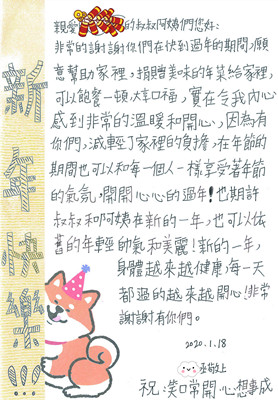 新年快樂!!!
親愛的叔叔阿姨們您好:
非常的謝謝你們在快到過年的期間,願
意幫助家裡,捐贈美味的年菜給家裡,
可以飽餐一頓,大享口福,實在令我內心
感到非常的溫暖和開心,因為有
你們,減輕了家裡的負擔,在年節的
期間也可以和每一個人一樣享受著年節
的氣氛,開開心心的過年!也期許
叔叔和阿姨在新的一年,也可以依
舊的年輕帥氣和美麗!新的一年,
身體越來越健康,每一天
都過的越來越開心!非常
謝謝有你們。
2020.1.18
敬上
祝:笑口常開 心想事成